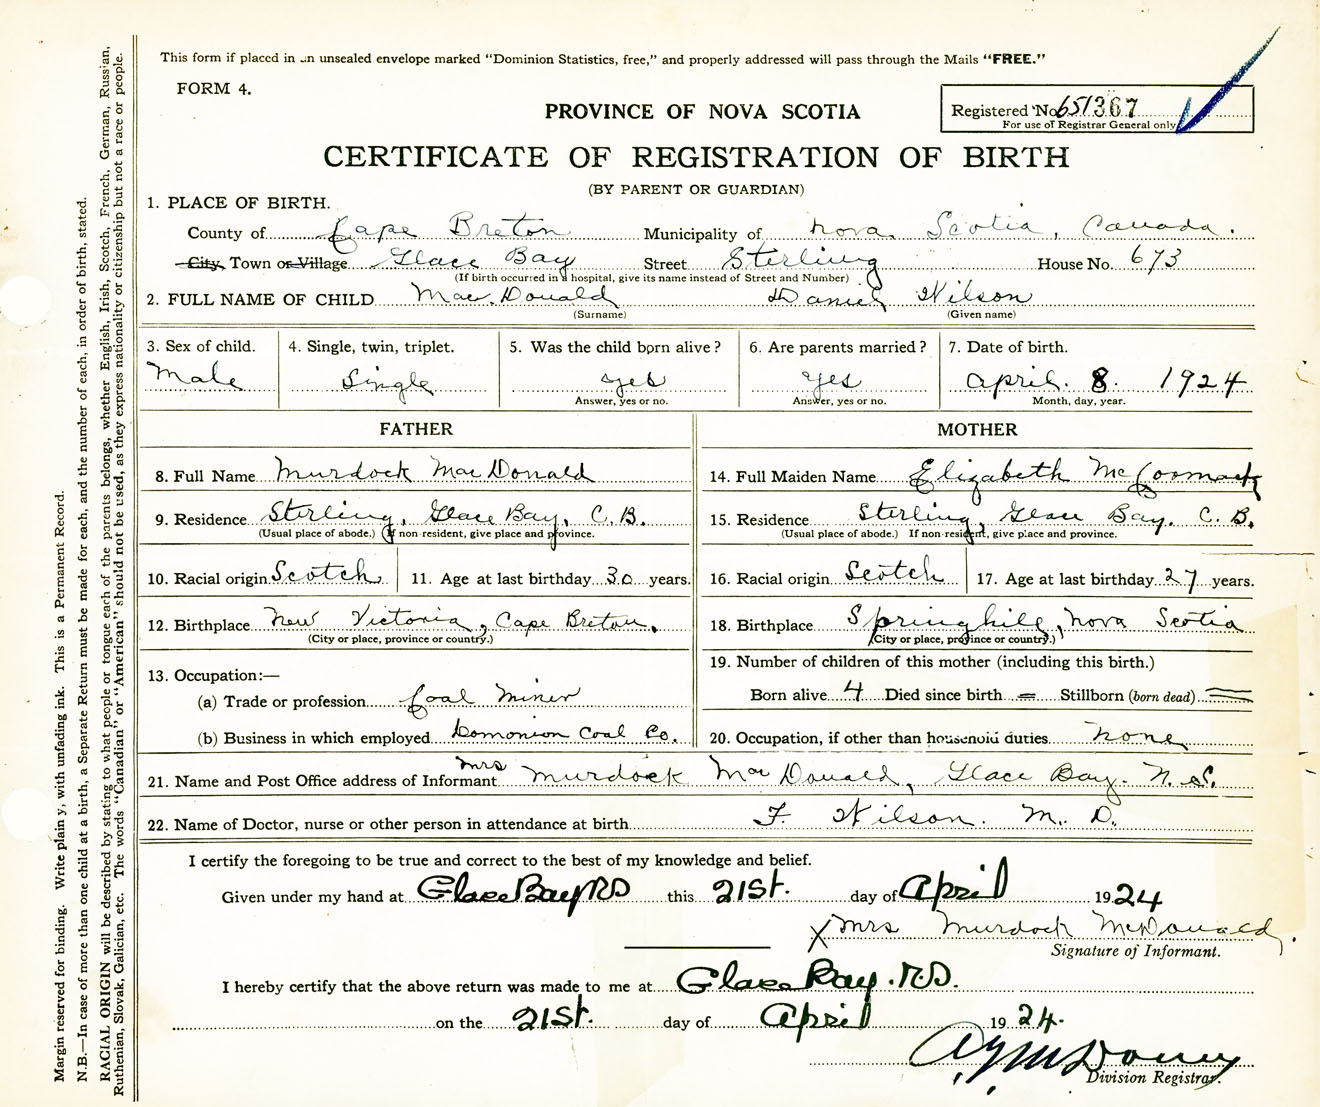 This form if placed in an unsealed envelope marked "Dominion Statistics, free," and properly addressed will pass through the Mails "FREE."
FORM 4.
PROVINCE OF NOVA SCOTIA
Registered No. 651367
For use of Registrar General only
CERTIFICATE OF REGISTRATION OF BIRTH
(BY PARENT OR GUARDIAN)
1. PLACE OF BIRTH.
County of Cape Breton Municipality of Nova Scotia, Canada.
City, Town or Village Glace Bay Street Sterling House No. 673
(If birth occurred in a hospital, give its name instead of Street and Number)
2. FULL NAME OF CHILD MacDonald Daniel Wilson
(Surname) (Given name)
3. Sex of child. 4. Single, twin, triplet. 5. Was the child born alive? 6. Are parents married? 7. Date of birth.
Male Single yes yes april. 8. 1924
Answer, yes or no. Answer, yes or no. Month, day, year.
FATHER MOTHER
8. Full Name Murdock MacDonald 14. Full Maiden Name Elizabeth McCormack
9. Residence Sterling, Glace Bay, C.B. 15. Residence Sterling, Glace Bay. C.B.
(Usual place of abode.) (If non-resident, give place and province. (Usual place of abode.) If non-resident, give place and province.
10. Racial origin Scotch 11. Age at last birthday 30 years. 16. Racial origin Scotch 17. Age at last birthday 27 years.
12. Birthplace New Victoria, Cape Breton. 18. Birthplace Springhill, Nova Scotia
(City or place, province or country.) (City or place, province or country.)
13. Occupation:— 19. Number of children of this mother (including this birth.)
(a) Trade or profession Coal Miner Born alive 4 Died since birth = Stillborn (born dead) =
(b) Business in which employed Domonion Coal Co. 20. Occupation, if other than household duties none
21. Name and Post Office address of Informant Mrs Murdock MacDonald, Glace Bay. N.S.
22. Name of Doctor, nurse or other person in attendance at birth F. Wilson. M.D.
I certify the foregoing to be true and correct to the best of my knowledge and belief.
Given under my hand at Glace Bay RD this 21st. day of April 1924
X Mrs Murdock McDonald,
Signature of Informant.
I hereby certify that the above return was made to me at Glace Bay. R.D.
on the 21st. day of April 1924.
Division Registrar.
Margin reserved for binding. Write plainly, with unfading ink. This is a Permanent Record.
N.B.—In case of more than one child at a birth, a Separate Return must be made for each, and the number of each, in order of birth, stated.
RACIAL ORIGIN will be described by stating to what people or tongue each of the parents belongs, whether English, Irish, Scotch, French, German, Russian,
Ruthenian, Slovak, Galician, etc. The words "Canadian" or "American" should not be used, as they express nationality or citizenship but not a race or people.